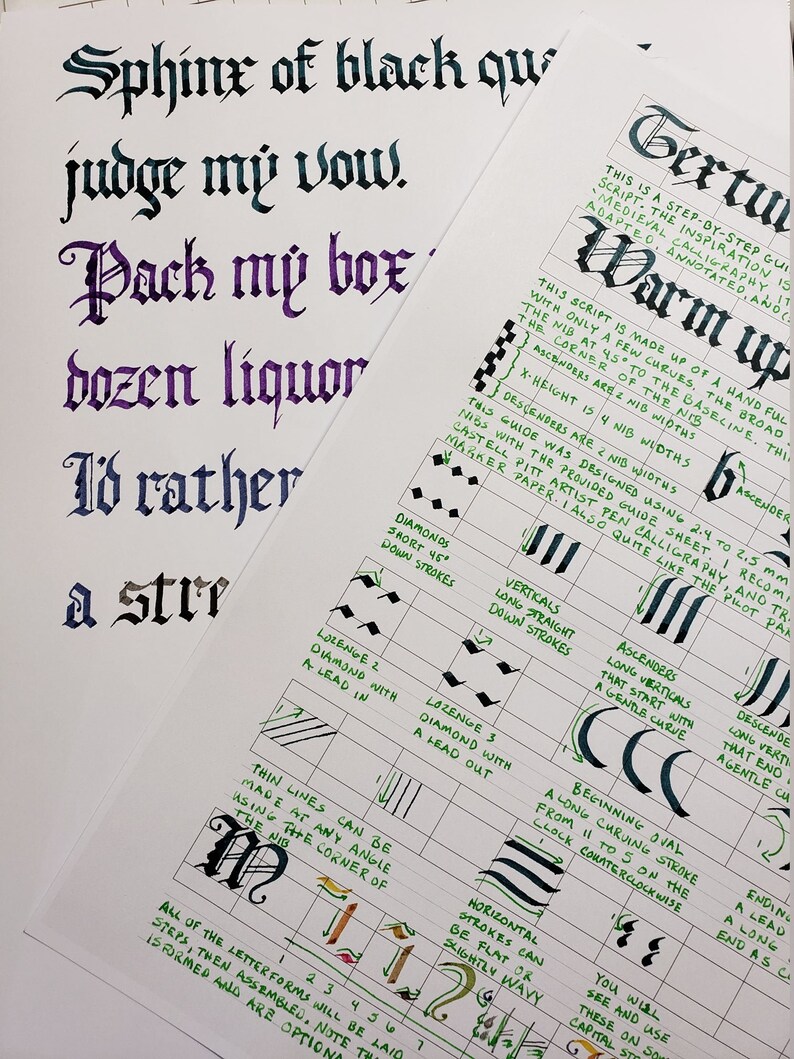 Sphinx of black
judge my vow.
Pack my box
dozen liquor
I'd rather
a
THIS IS A STEP-BY-STEP
SCRIPT. THE INSPIRATION IS
MEDIEVAL CALLIGRAPHY. IT
ADAPTED, ANNOTATED, AND
Warm up
THIS SCRIPT IS MADE UP OF A HANDFUL
WITH ONLY A FEW CURVES, THE BROAD
THE NIB AT 45° TO THE BASELINE.
THE CORNER OF THE NIB
ASCENDERS ARE 2 NIB WIDTHS
X-HEIGHT IS 4 NIB WIDTHS
DESCENDERS ARE 2 NIB WIDTHS
b
ASCENDER
THIS GUIDE WAS DESIGNED USING 2.4 TO 2.5 MM
NIBS WITH THE PROVIDED GUIDE SHEET. I
CASTELL PITT ARTIST PEN CALLIGRAPHY, AND
MARKER PAPER. I ALSO QUITE LIKE THE PILOT
DIAMONDS
SHORT 45°
DOWN STROKES
VERTICALS
LONG STRAIGHT
DOWN STROKES
ASCENDERS
LONG VERTICALS
THAT START WITH
A GENTLE CURVE
LONG
THAT END
A GENTLE
LOZENGE 2
DIAMOND WITH
A LEAD IN
LOZENGE 3
DIAMOND WITH
A LEAD OUT
BEGINNING OVAL
A LONG CURVING STROKE
FROM 11 TO 5 ON THE
CLOCK COUNTERCLOCKWISE
ENDING
A LEAD
A LONG
END AS
THIN LINES CAN BE
MADE AT ANY ANGLE
USING THE CORNER OF
THE NIB
HORIZONTAL
STROKES CAN
BE FLAT OR
SLIGHTLY WAVY
YOU WILL
SEE AND USE
THESE ON
CAPITAL
M
1 2 3 4 5 6 7
ALL OF THE LETTERFORMS WILL BE LAID
STEPS, THEN ASSEMBLED. NOTE
IS FORMED AND ARE